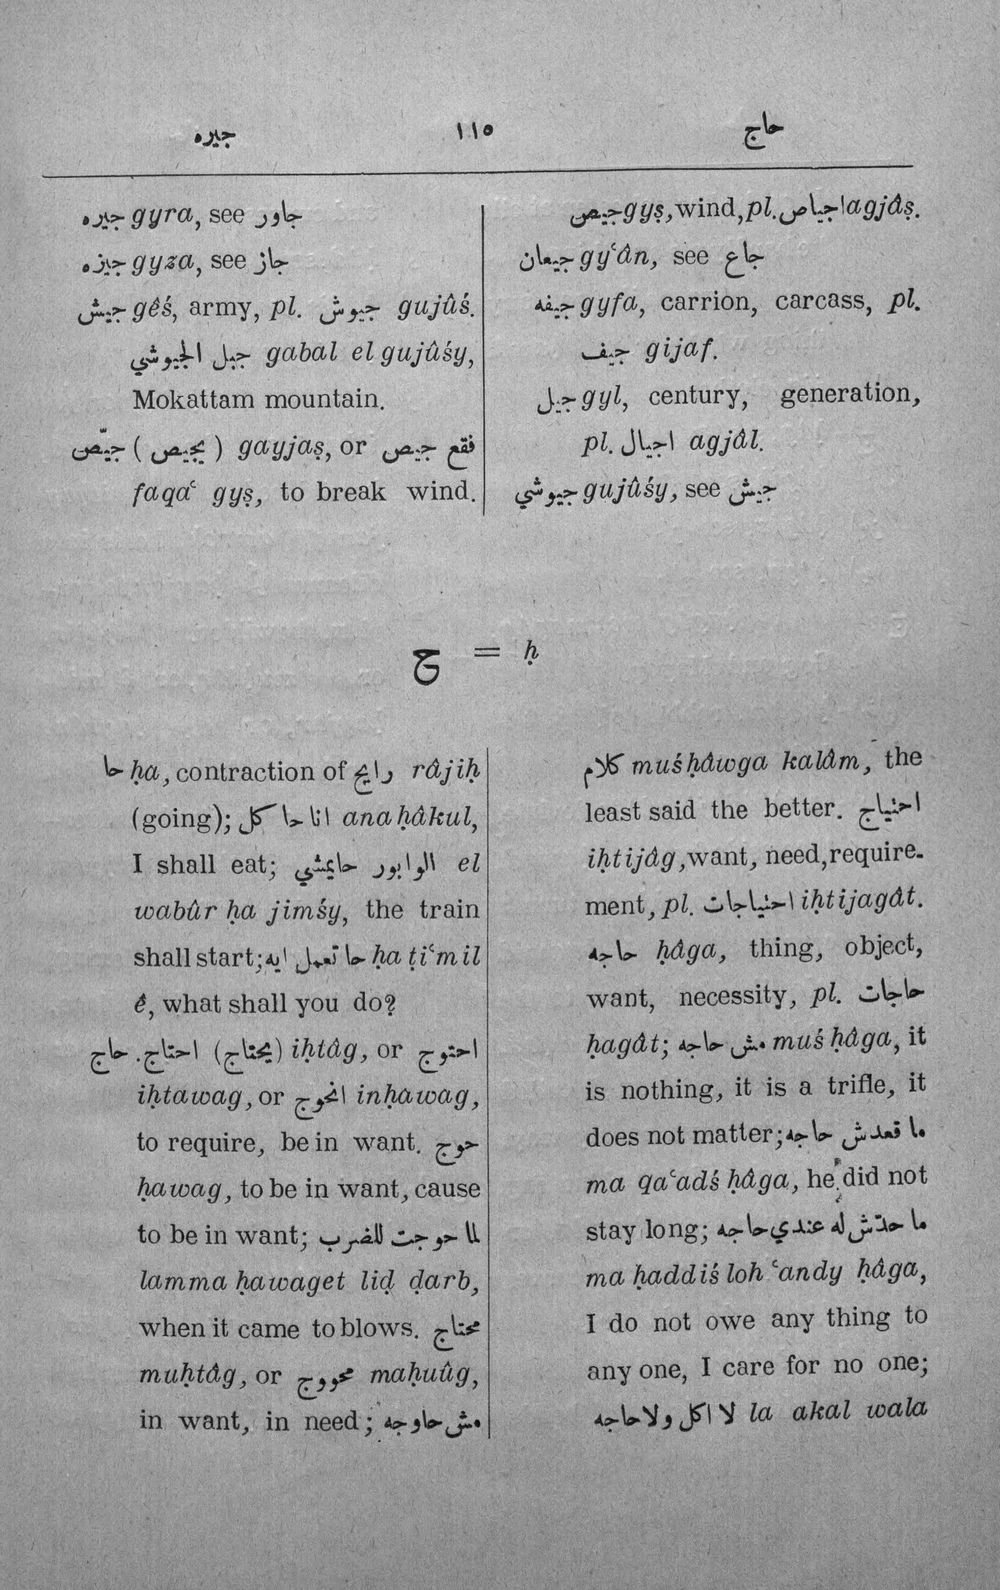 جيره ١١٥ حاج
جيره gyra, see جاور
جيزه gyza, see جاز
جيش gêś, army, pl. جيوش gujûś.
جبل الجيوشي gabal el gujûśy,
Mokattam mountain.
جيّص (يجيص) gayjaṣ, or فقع جيص
faqaʿ gyṣ, to break wind.
جيص gyṣ, wind, pl. اجياص agjâṣ.
جيعان gyʿân, see جاع
جيفه gyfa, carrion, carcass, pl.
جيف gijaf.
جيل gyl, century, generation,
pl. اجيال agjâl.
جيوشي gujûśy, see جيش
ح = ḥ
حا ḥa, contraction of رايح râjiḥ
(going); انا حا كل ana ḥâkul,
I shall eat; الوابور حايمشي el
wabûr ḥa jimśy, the train
shall start; حا تعمل ايه ḥa ṭiʿmil
ê, what shall you do?
حاج. احتاج (يحتاج) iḥtâg, or احتوج
iḥtawag, or انحوج inḥawag,
to require, be in want. حوج
ḥawag, to be in want, cause
to be in want; لما حوجت للضرب
lamma ḥawaget liḍ ḍarb,
when it came to blows. محتاج
muḥtâg, or محووج maḥuûg,
in want, in need; مش حاوجه
كلام muśḥâwga kalâm, the
least said the better. احتياج
iḥtijâg, want, need, require-
ment, pl. احتياجات iḥtijagât.
حاجه ḥâga, thing, object,
want, necessity, pl. حاجات
ḥagât; مش حاجه muś ḥâga, it
is nothing, it is a trifle, it
does not matter; ما قعدش حاجه
ma qaʿadś ḥâga, he did not
stay long; ما حدّش له عندي حاجه
ma ḥaddiś loh ʿandy ḥâga,
I do not owe any thing to
any one, I care for no one;
لا اكل ولا حاجه la akal wala